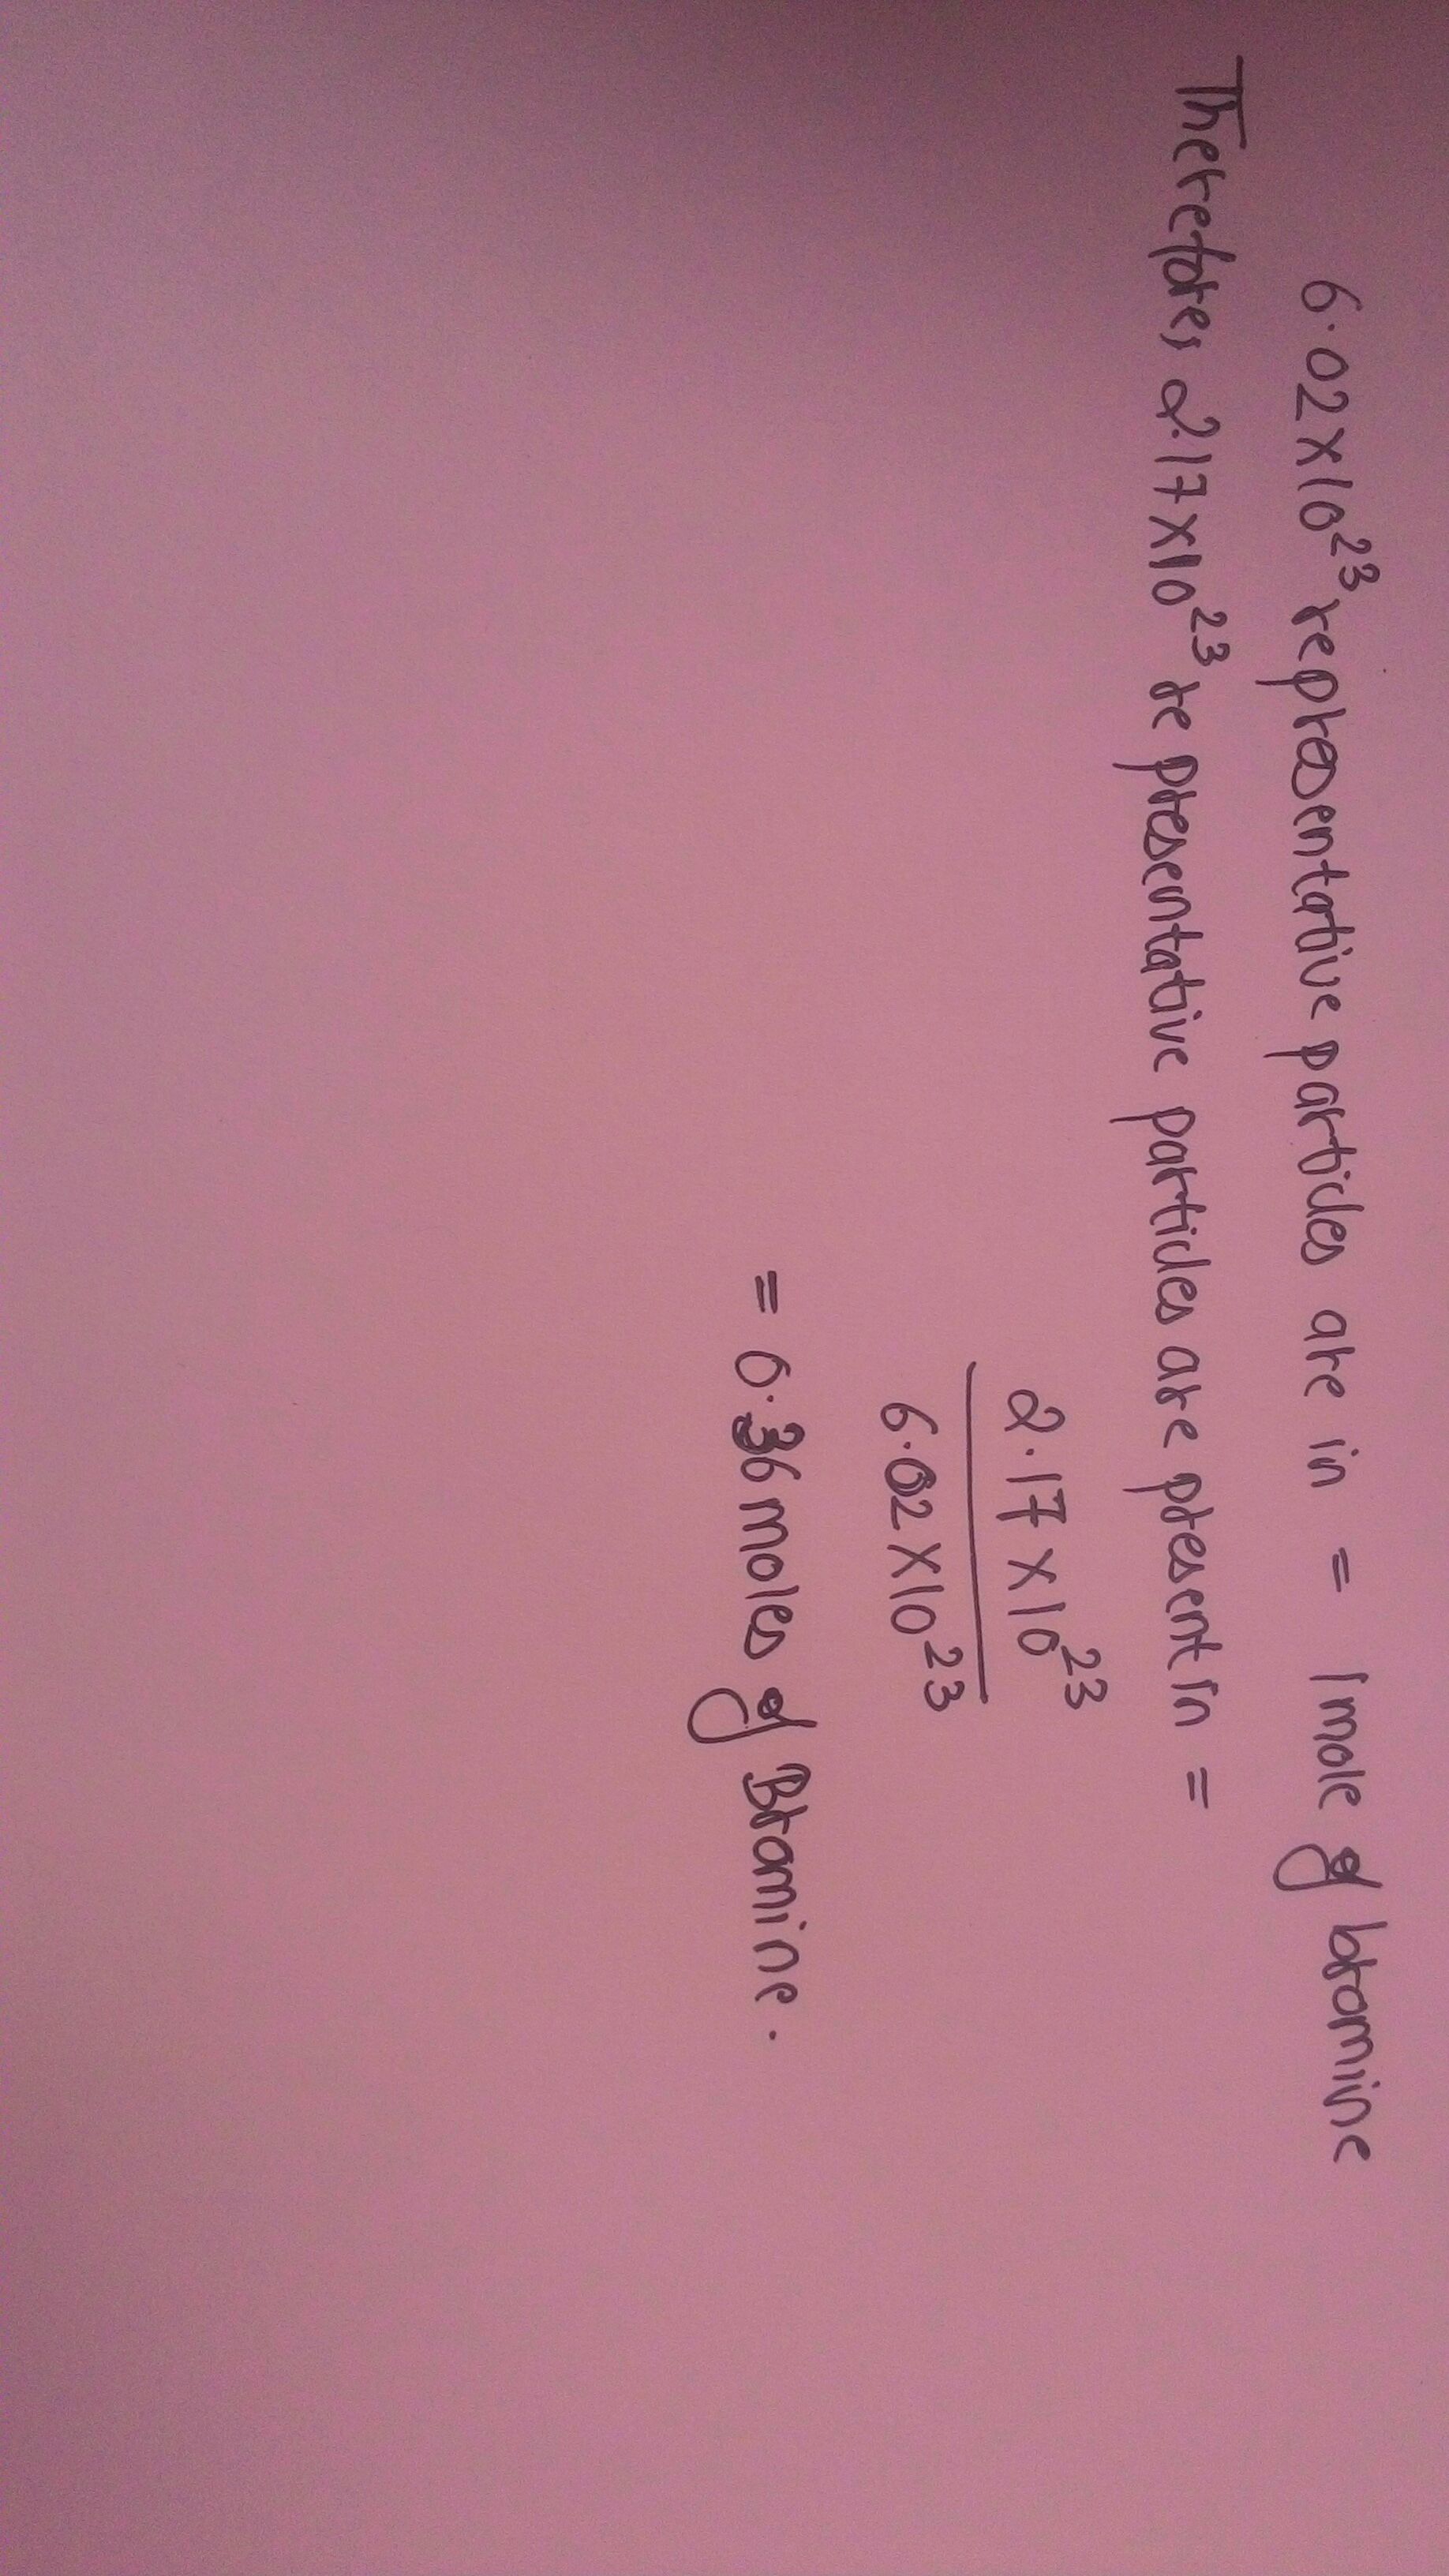 6.02×10²³ representative particles are in = 1mole of bromine
Therefore, 2.17×10²³ representative particles are present in =
2.17×10²³
6.02×10²³
= 0.36 moles of Bromine.